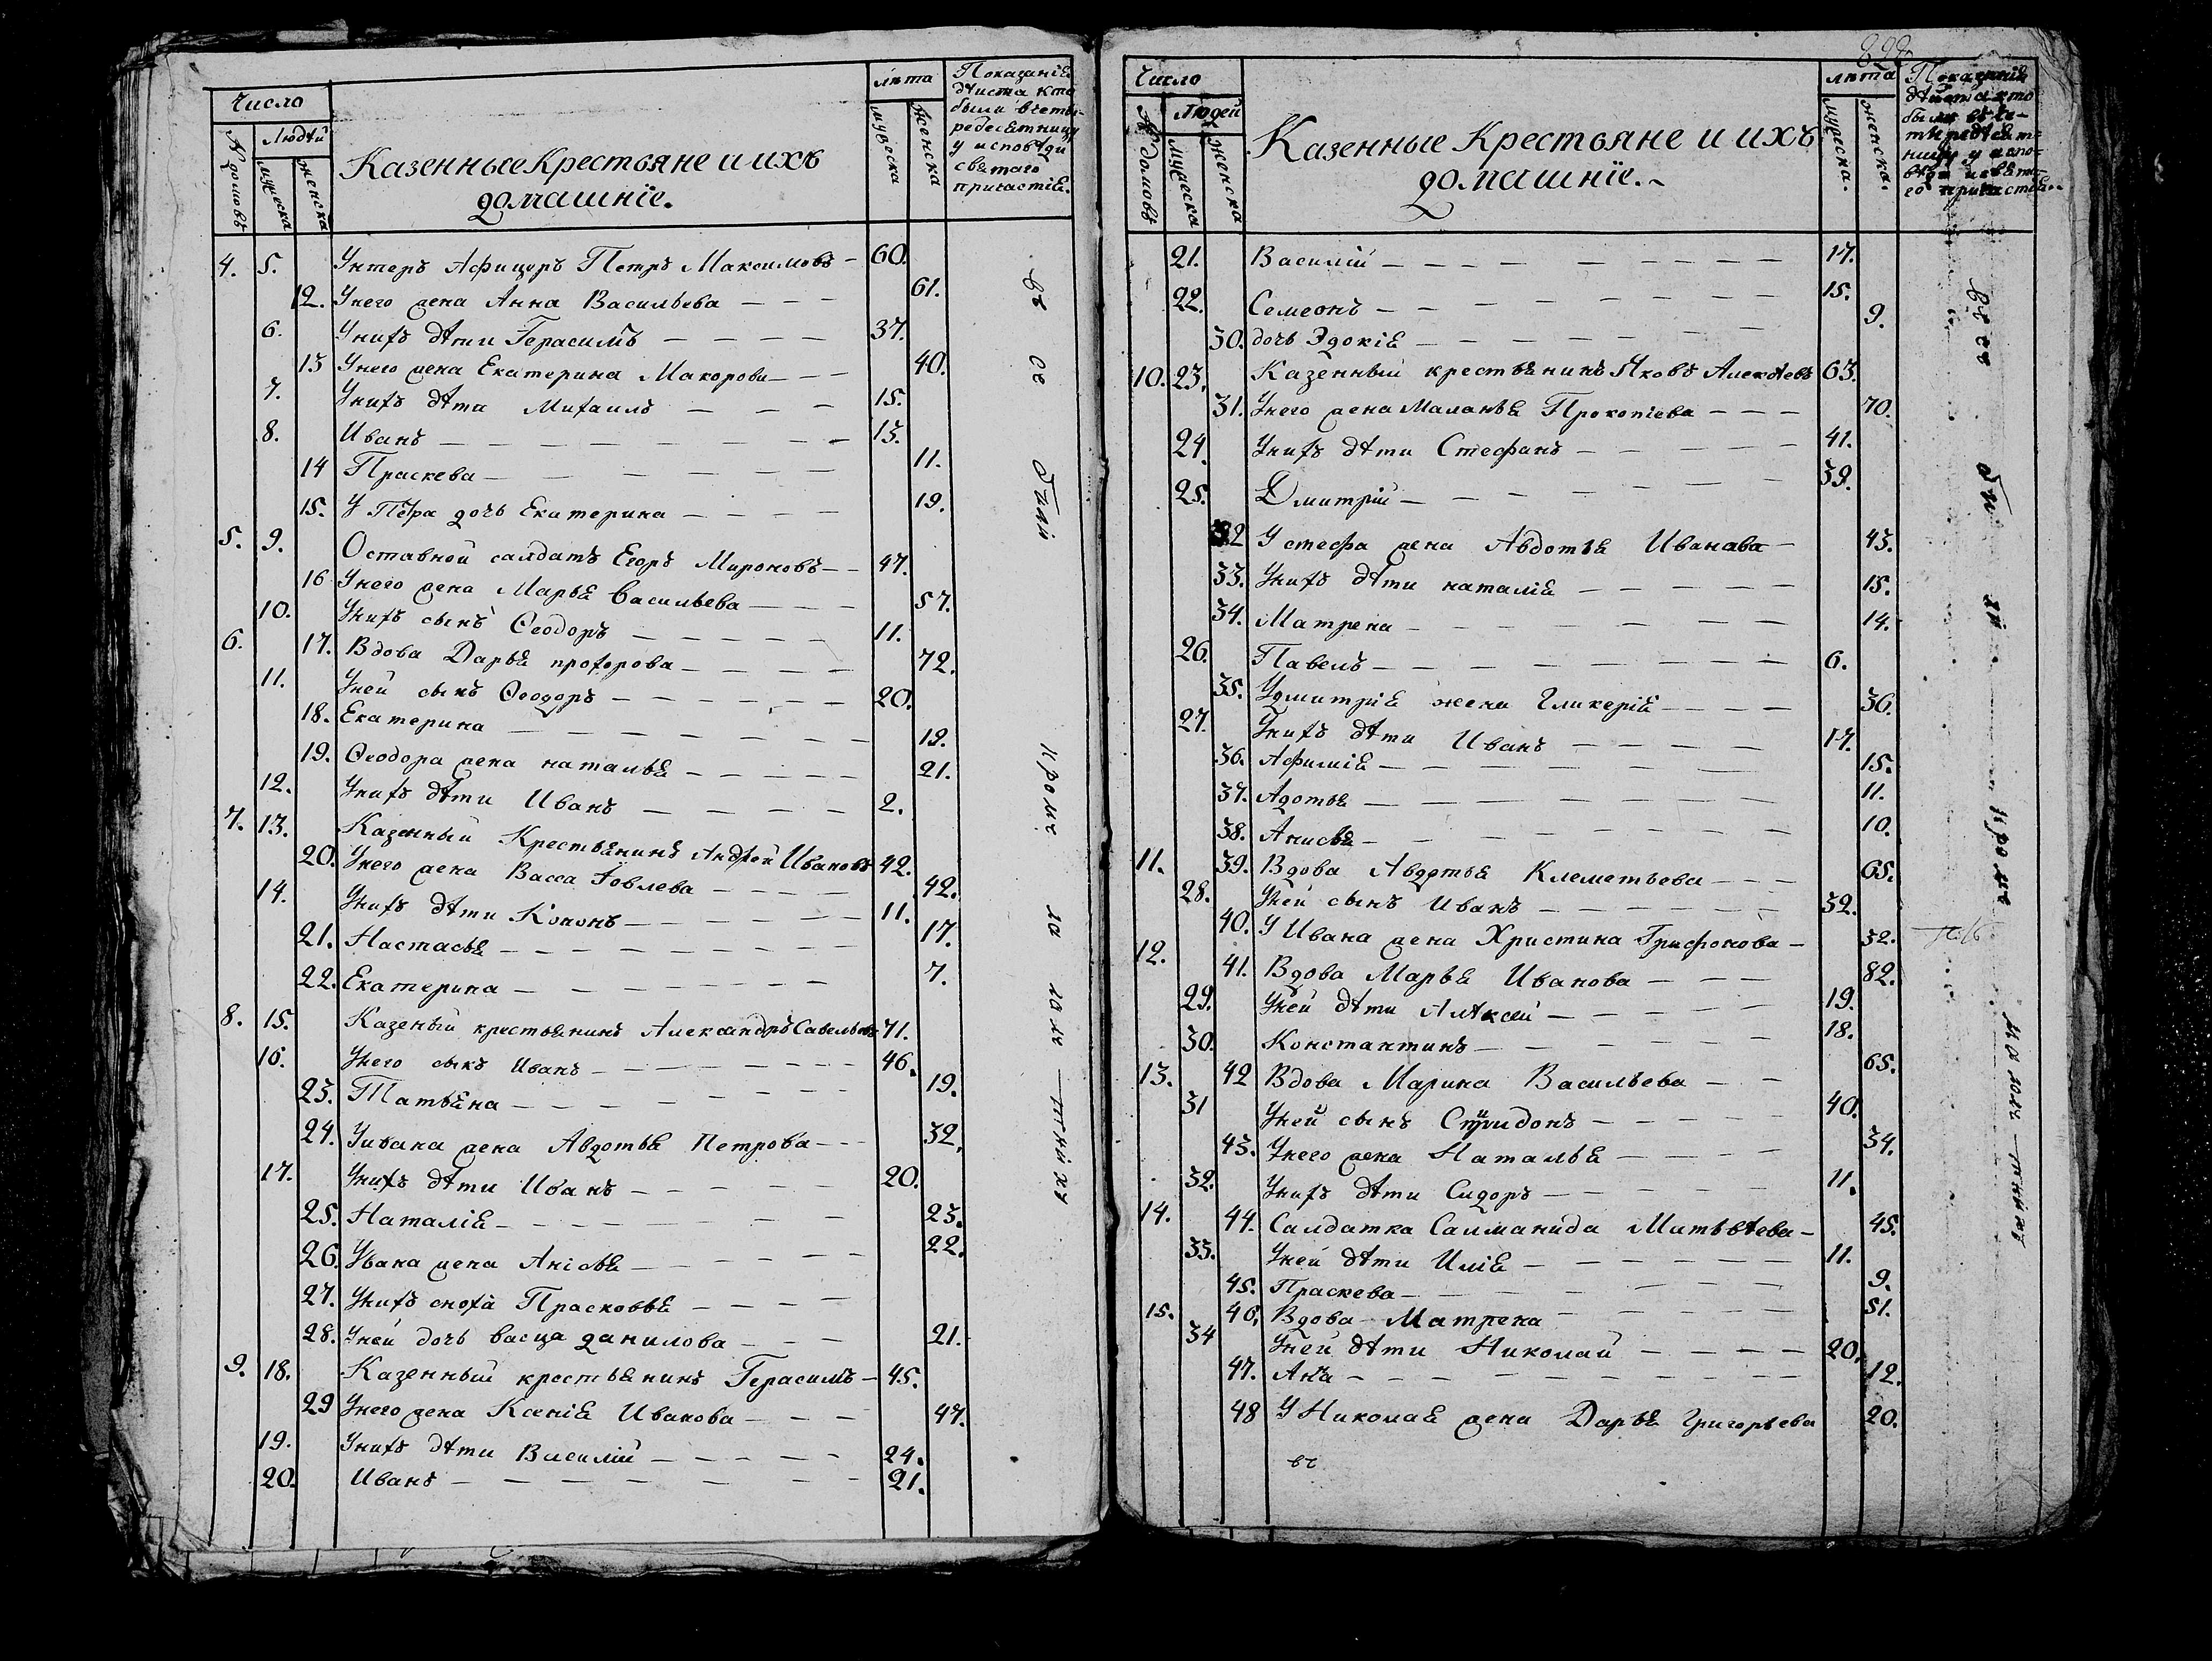 Число
Людѣй
№ домовъ
мужеска
женска
Казенные Крестьяне и ихъ
домашніе.
лѣта
мужеска
женска
Показаніе
дѣиства кто
были вчеты-
редесѣтницу
у исповѣди
святаго
причастія.
4. 5. Унтеръ Афицеръ Петръ Максимовъ – 60.
12. Унего жена Анна Васильева – – – 61.
6. Унихъ дѣти Герасимъ – – – – 37.
13 Унего жена Екатерина Макорова – – – 40.
7. Унихъ дѣти Михаилъ – – – 15.
8. Иванъ – – – – – – – – 13.
14 Праскева – – – – – – – 11.
15. У Петра дочь Екатерина – – – – 19.
5. 9. Оставной салдатъ Егоръ Мироновъ – – 47.
16 Унего жена Марья васильева – – – – 57.
10. Унихъ сынъ Ѳеодоръ – – – – – 11.
6. 17. Вдова Дарья прохорова – – – – 72.
11. Уней сынъ Ѳеодоръ – – – – – – 20.
18. Екатерина – – – – – – – 19.
19. Ѳеодора жена наталья – – – – – 21.
12. Унихъ дѣти Иванъ – – – – 2.
7. 13. Казенный Крестьянинъ Андрѣй Ивановъ 42.
20. Унего жена Васса Іовлева – – – – 42.
14. Унихъ дѣти Кононъ – – – – – – 11.
21. Настасья – – – – – – – – 17.
22. Екатерина – – – – – – – – 7.
8. 15. Казеный крестьянинъ Александръ Савельевъ 71.
16. Унего сынъ Иванъ – – – – – – – 46.
23. Татьяна – – – – – – – – 19.
24. Уивана жена Авдотья Петрова – – – 32.
17. Унихъ дѣти Иванъ – – – – – 20.
25. Наталія – – – – – – – – 23.
26. Увана жена Анісья – – – – – 22.
27. Унихъ сноха Прасковья – – – –
28. Уней дочь васца данилова – – – 21.
9. 18. Казенный крестьянинъ Герасимъ – 45.
29 Унего жена Ксенія Иванова – – – 47.
19. Унихъ дѣти Василій – – – – – 24.
20. Иванъ – – – – – – – – 21.
Число
Людей
№ домовъ
мужеска
женска
Казенные Крестьяне и ихъ
домашніе.
лѣта
мужеска.
женска.
21. Василій – – – – – – – – – 17.
22. Семеонъ – – – – – – – – 15.
30. дочь Эдокія – – – – – – – 9.
10. 23. Казенный крестьянинъ Яковъ Алексѣевъ 63.
31. Унего жена Маланья Прокопіева – – – 70.
24. Унихъ дѣти Стефанъ – – – – 41.
25. Дмитрій – – – – – – – – 39.
32 У стефа жена Авдотья Иванава – 43.
33. Унихъ дѣти наталія – – – – – 15.
34. Матрена – – – – – – – – 14.
26. Павелъ – – – – – – – – – 6.
35. Удмитрія жена Гликерія – – – – 36.
27. Унихъ дѣти Иванъ – – – – 17.
36. Афимія – – – – – – – – 15.
37. Адотья – – – – – – – – 11.
38. Анисья – – – – – – – – 10.
11. 39. Вдова Авдотья Клеметьева – – – 65.
28. Уней сынъ Иванъ – – – – – – 32.
40. У Ивана жена Христина Трифонова – 32.
12. 41. Вдова Марья Иванова – – – 82.
29. Уней дѣти Алѣксей – – – – – 19.
30. Константинъ – – – – – – 18.
13. 42 Вдова Марина Васильева – – 65.
31 Уней сынъ Спиридонъ – – – – 40.
43. Унего жена Наталья – – – – 34.
32. Унихъ дѣти Сидоръ – – – – – 11.
14. 44. Салдатка Салманида Матвѣева – 45.
33. Уней дѣти Илія – – – – – – 11.
45. Праскева – – – – – – – 9.
15. 46. Вдова Матрена – – – – – 51.
34 Уней дѣти Николай – – – – 20.
47. Анѣа – – – – – – – – – 12.
48 У Николая жена Дарья Григорьева 20.